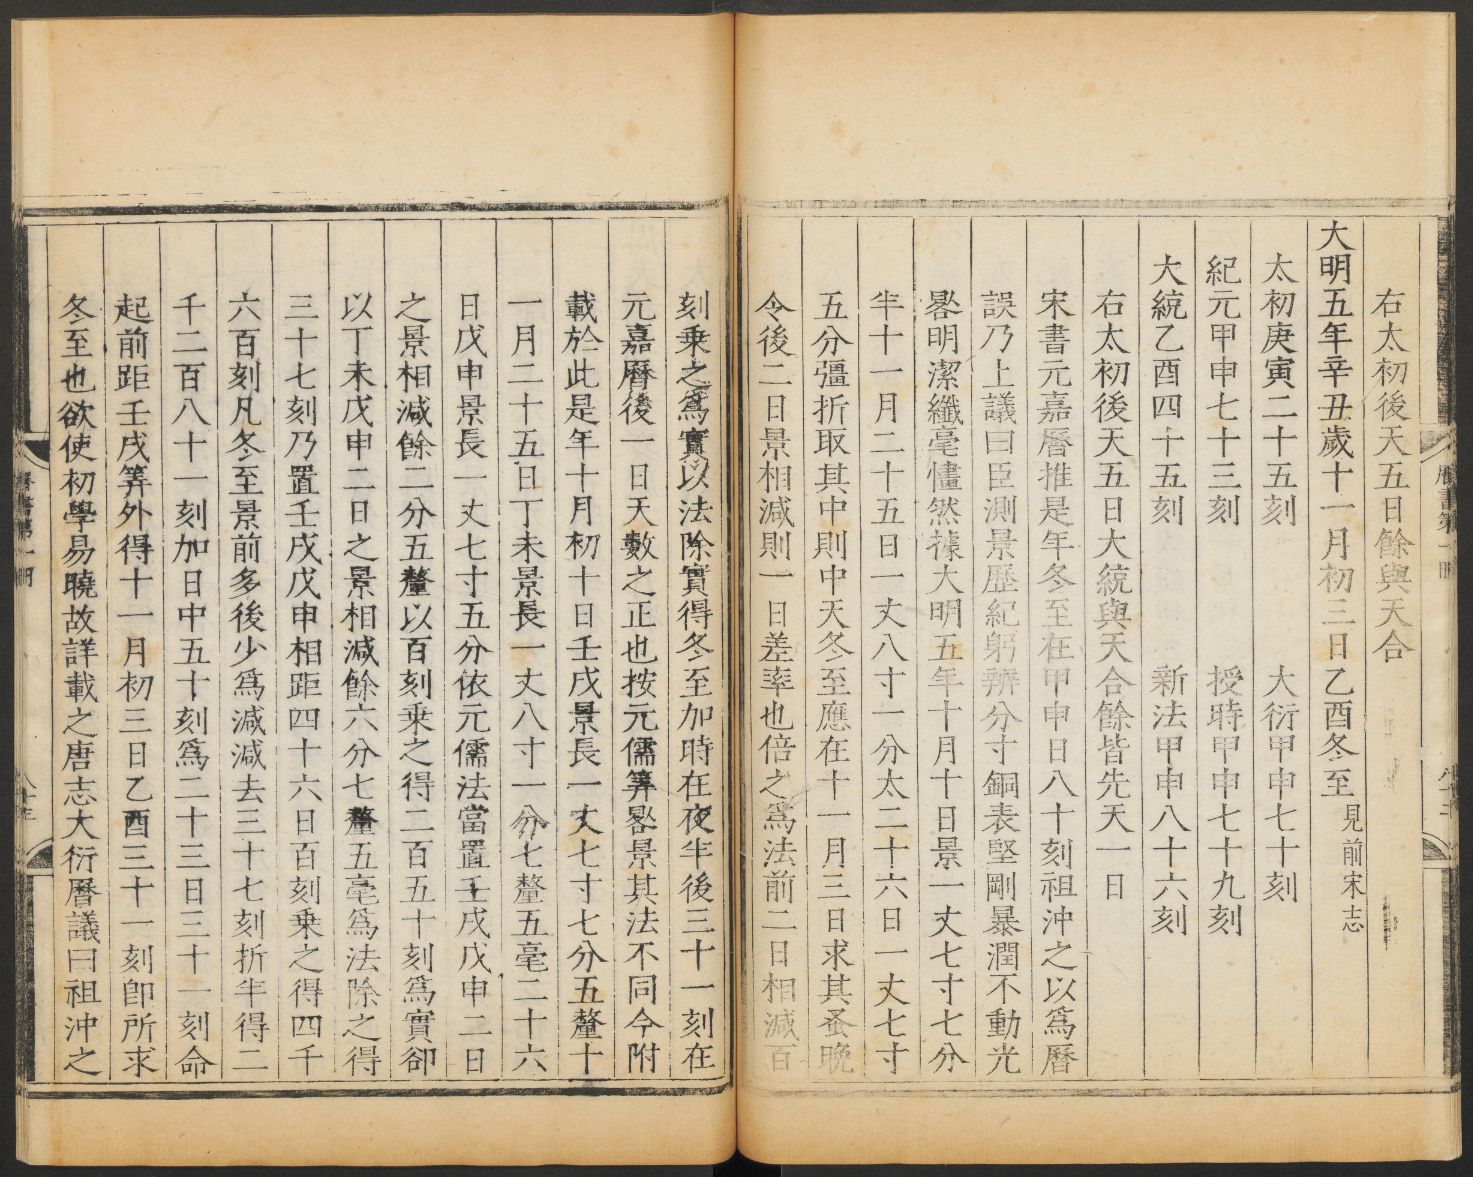 右太初後天五日餘與天合
大明五年辛丑歲十一月初三日乙酉冬至見前宋志
太初庚寅二十五刻　大衍甲申七十刻
紀元甲申七十三刻　授時甲申七十九刻
大統乙酉四十五刻　新法甲申八十六刻
右太初後天五日大統與天合餘皆先天一日
宋書元嘉曆推是年冬至在甲申日八十刻祖沖之以爲曆
誤乃上議曰臣測景歷紀躬辨分寸銅表堅剛暴潤不動光
晷明潔纖毫㦎然據大明五年十月十日景一丈七寸七分
半十一月二十五日一丈八寸一分太二十六日一丈七寸
五分彊折取其中則中天冬至應在十一月三日求其蚤晚
令後二日景相減則一日差率也倍之爲法前二日相減百
刻乗之爲實以法除實得冬至加時在夜半後三十一刻在
元嘉曆後一日天數之正也按元儒筭晷景其法不同今附
載於此是年十月初十日壬戌景長一丈七寸七分五釐十
一月二十五日丁未景長一丈八寸一分七釐五毫二十六
日戊申景長一丈七寸五分依元儒法當置壬戌戊申二日
之景相減餘二分五釐以百刻乗之得二百五十刻爲實卻
以丁未戊申二日之景相減餘六分七釐五毫爲法除之得
三十七刻乃置壬戌戊申相距四十六日百刻乗之得四千
六百刻凡冬至景前多後少爲減減去三十七刻折半得二
千二百八十一刻加日中五十刻爲二十三日三十一刻命
起前距壬戌筭外得十一月初三日乙酉三十一刻卽所求
冬至也欲使初學易曉故詳載之唐志大衍曆議曰祖沖之
曆書第一冊